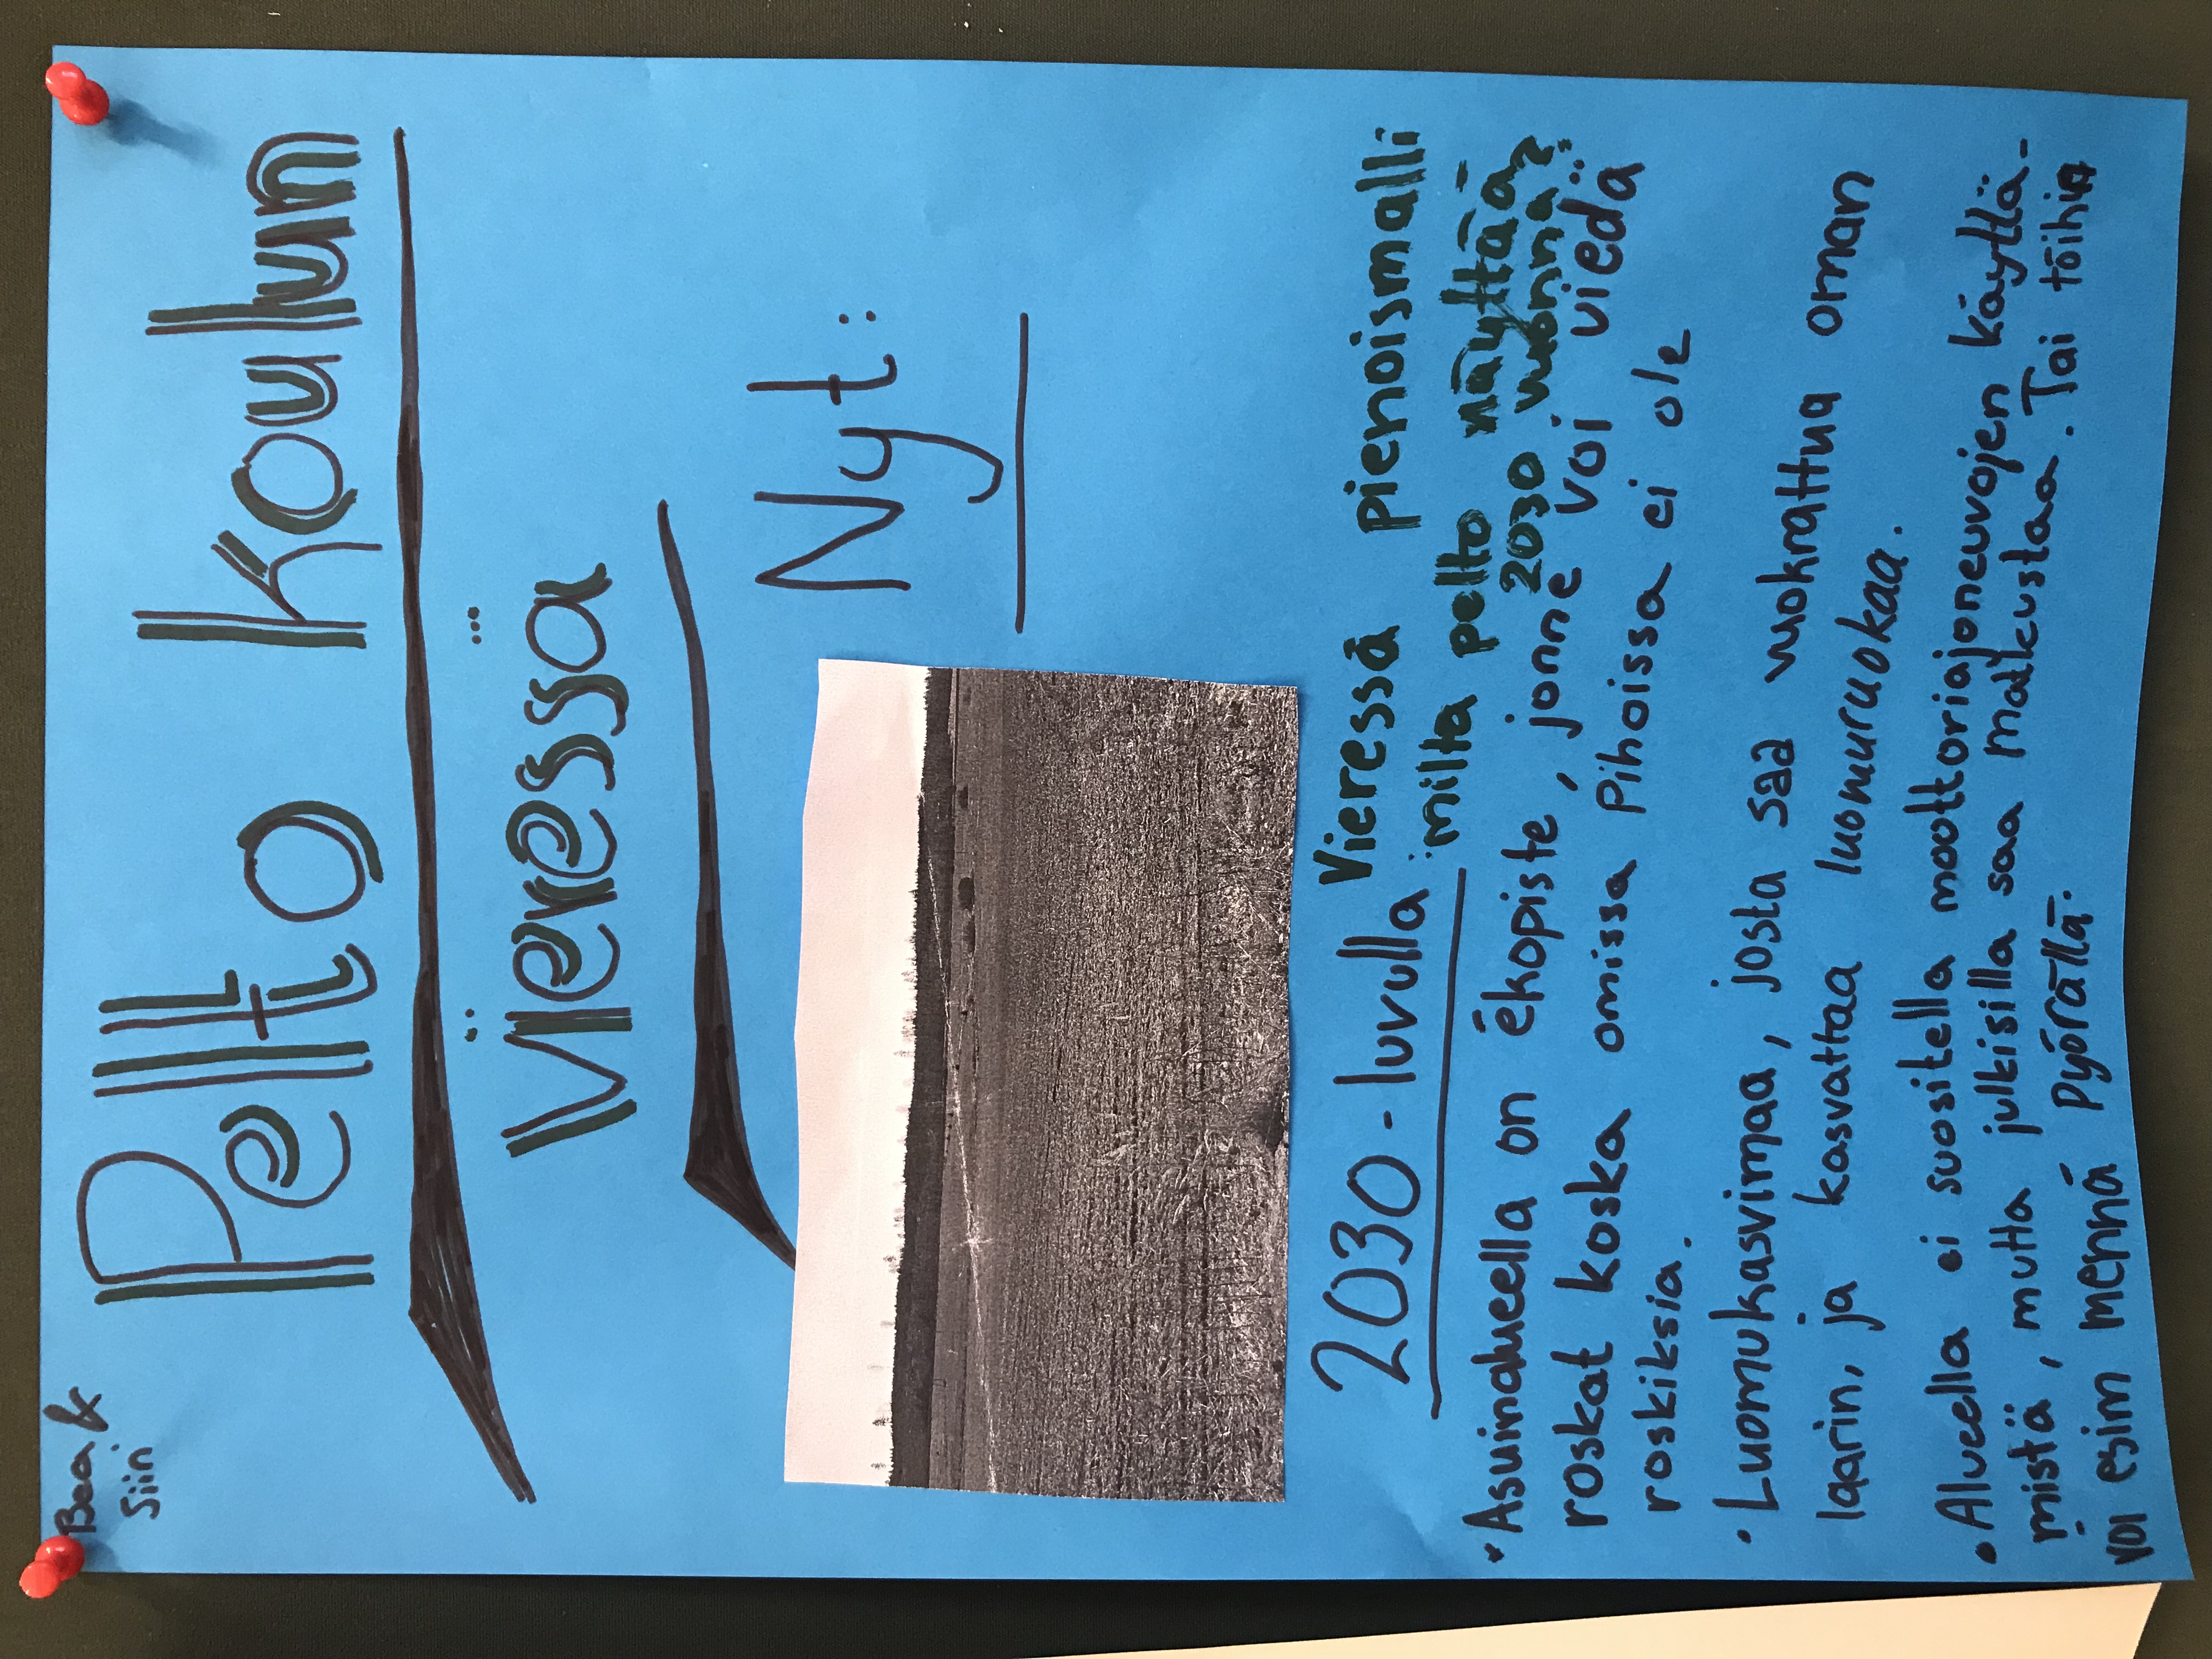 Bea &
Siin
Pelto Koulun
Vieressä
Nyt:
2030-luvulla
Vieressä pienoismalli
miltä pelto näyttää
2030 vuonna?
• Asuinalueella on ekopiste, jonne voi viedä
roskat koska omissa pihoissa ei ole
roskiksia.
• Luomukasvimaa, josta saa vuokrattua oman
laarin, ja kasvattaa luomuruokaa.
• Alueella ei suositella moottoriajoneuvojen käyttä-
mistä, mutta julkisilla saa matkustaa. Tai töihin
voi esim mennä pyörällä.